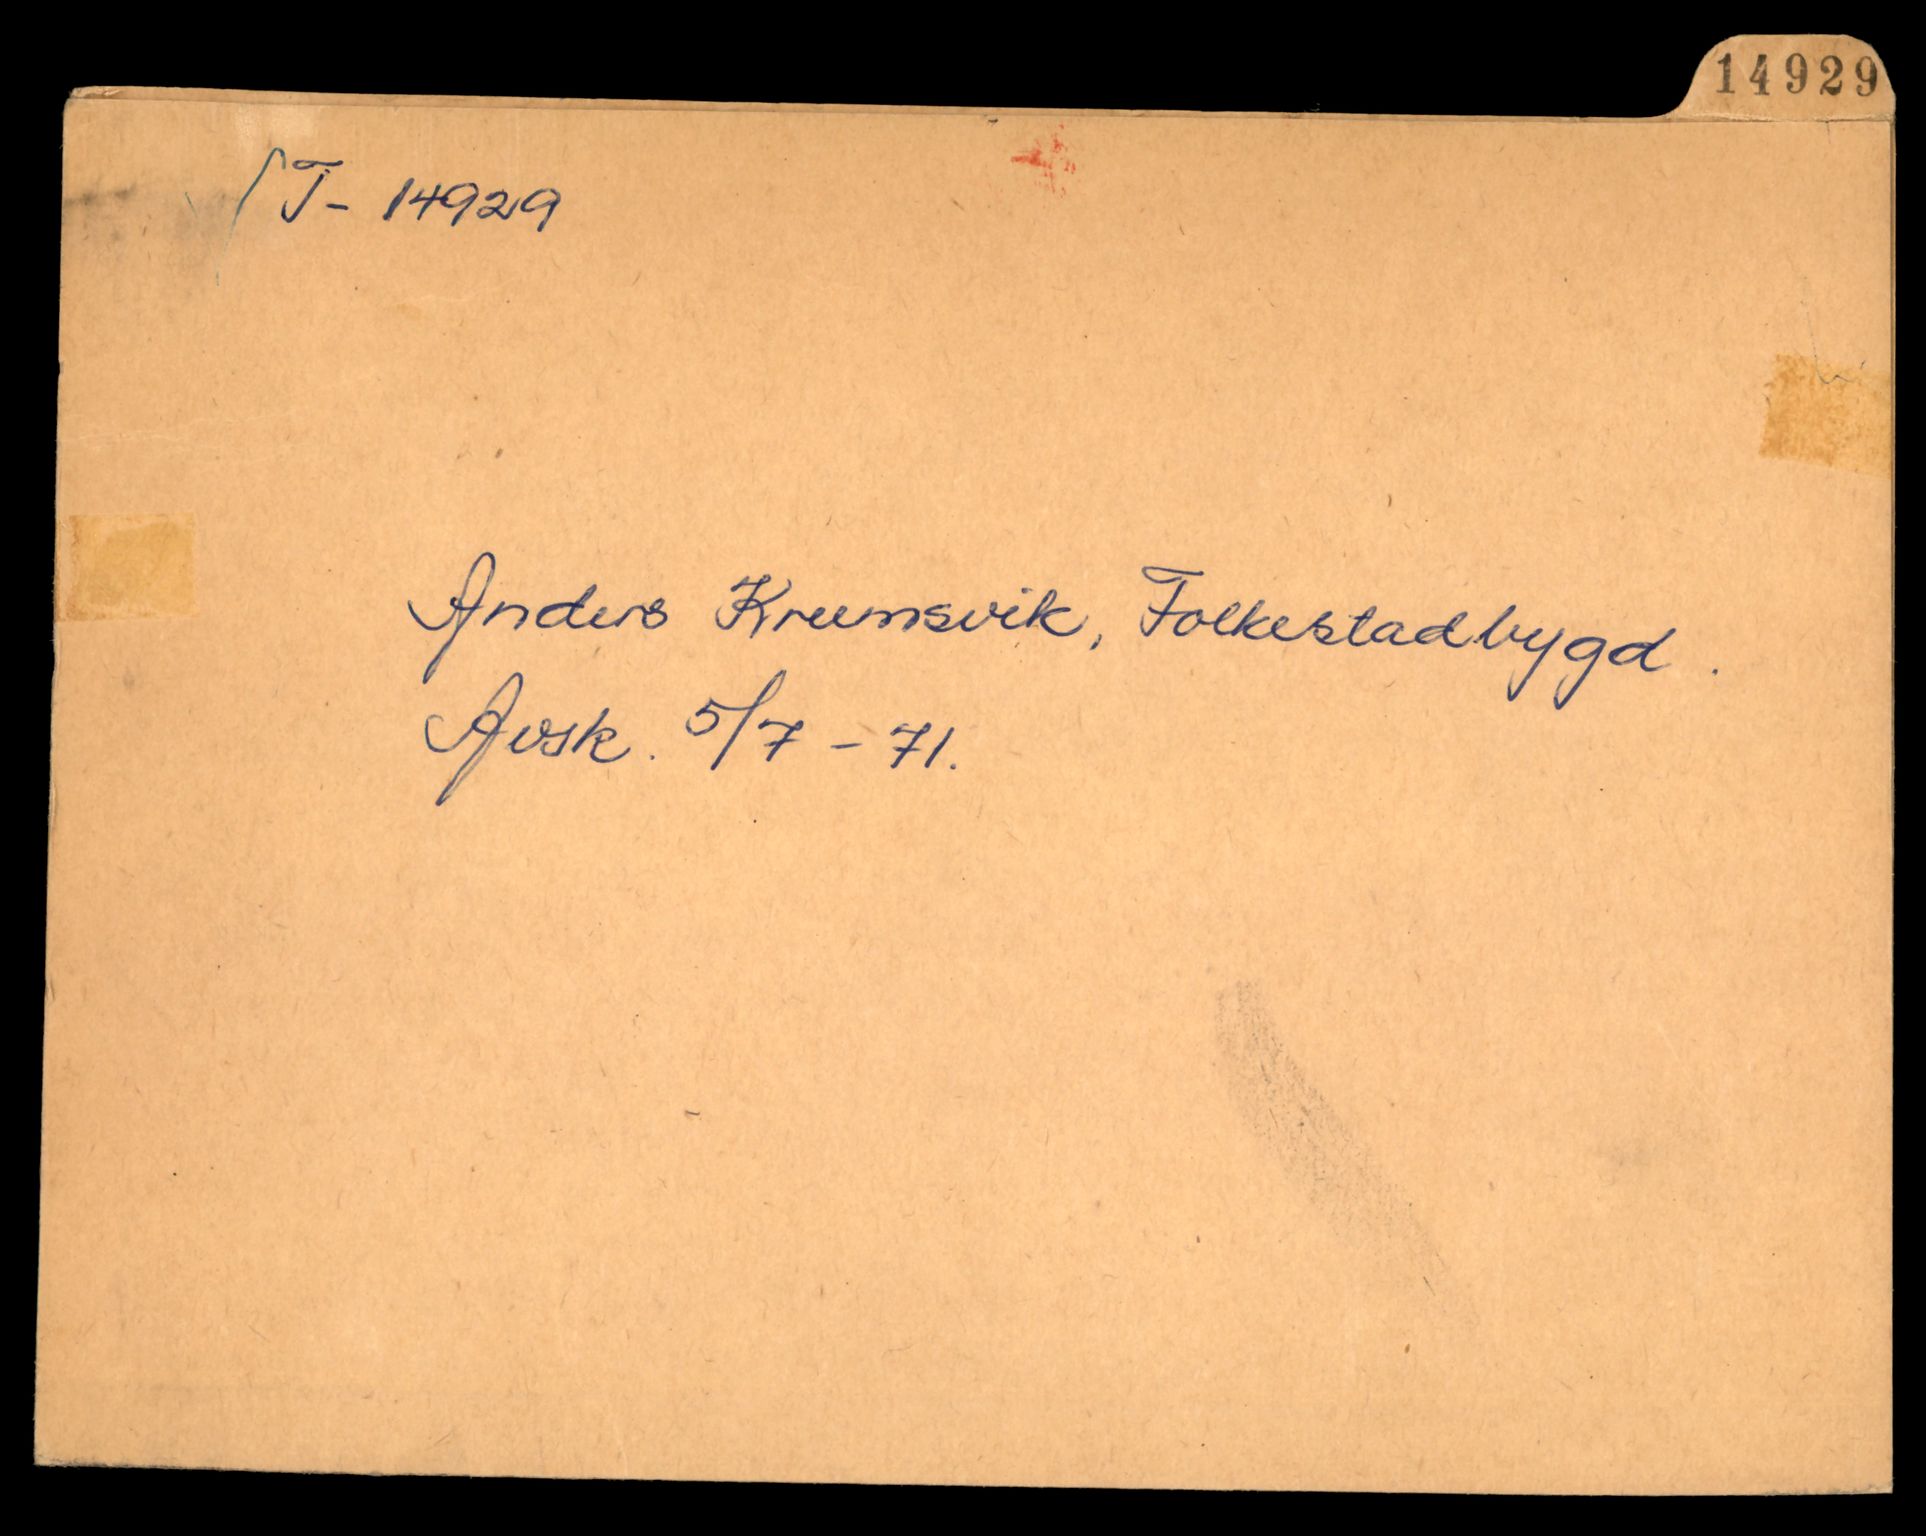 14929
T- 14929
Anders Krumsvik, Folkestadbygd.
Avsk. 5/7 - 71.